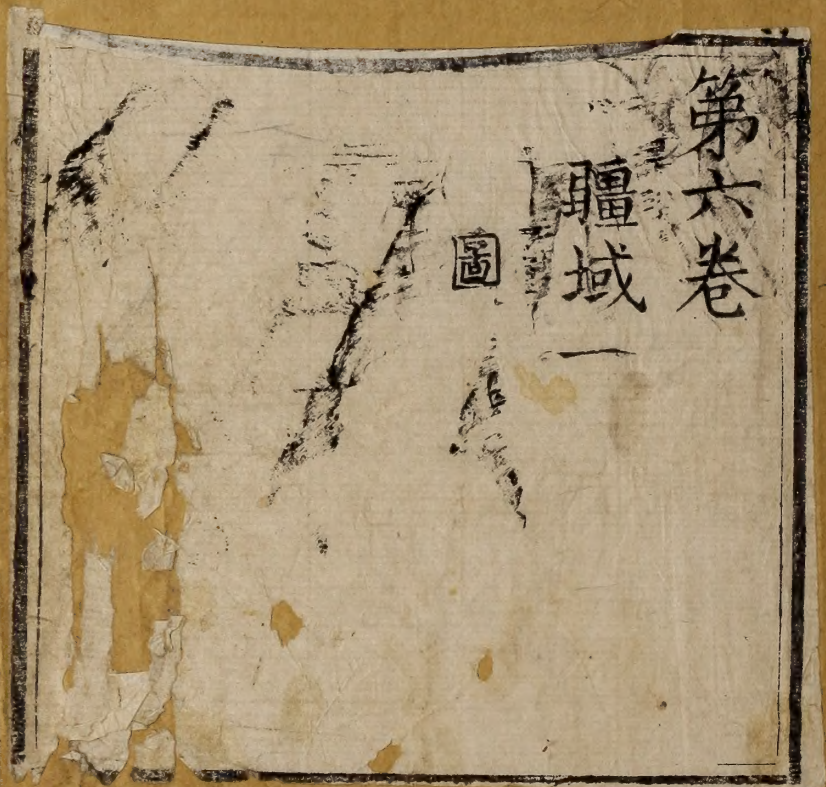 第六卷
疆域一
圖